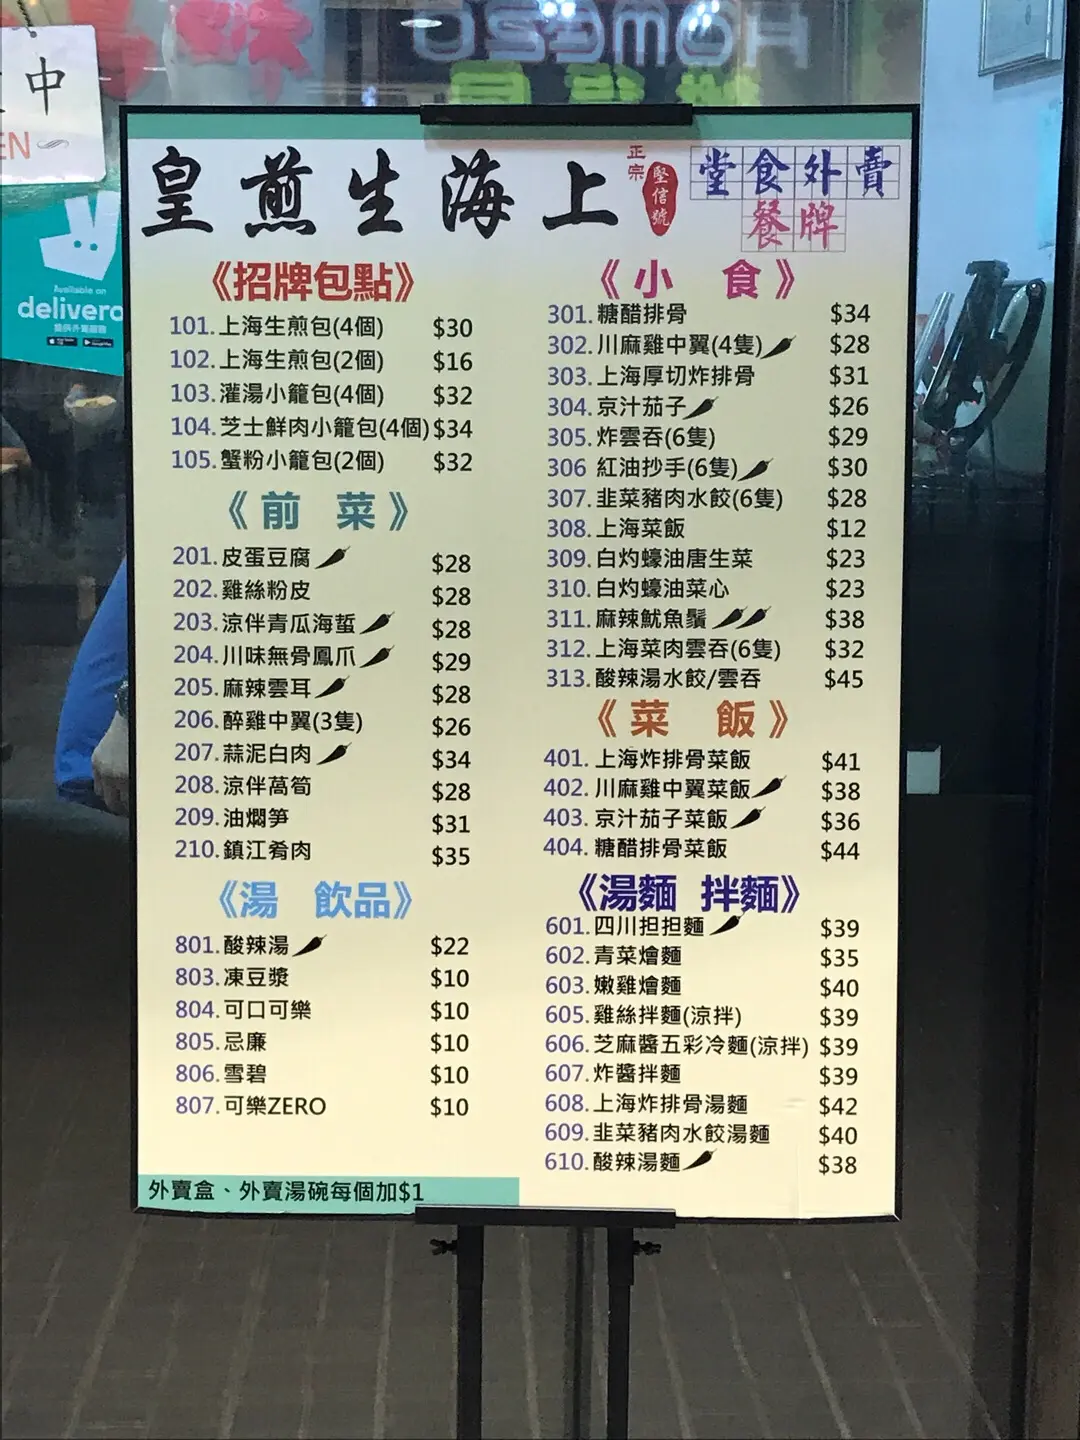 中
EN
Available on
deliveroo
提供外賣服務
皇煎生海上
正宗
堅信號
堂食外賣
餐牌
《招牌包點》
101.上海生煎包(4個) $30
102.上海生煎包(2個) $16
103.灌湯小籠包(4個) $32
104.芝士鮮肉小籠包(4個) $34
105.蟹粉小籠包(2個) $32
《前 菜》
201.皮蛋豆腐 $28
202.雞絲粉皮 $28
203.涼伴青瓜海蜇 $28
204.川味無骨鳳爪 $29
205.麻辣雲耳 $28
206.醉雞中翼(3隻) $26
207.蒜泥白肉 $34
208.涼伴萵筍 $28
209.油燜笋 $31
210.鎮江肴肉 $35
《湯 飲品》
801.酸辣湯 $22
803.凍豆漿 $10
804.可口可樂 $10
805.忌廉 $10
806.雪碧 $10
807.可樂ZERO $10
外賣盒、外賣湯碗每個加$1
《小 食》
301.糖醋排骨 $34
302.川麻雞中翼(4隻) $28
303.上海厚切炸排骨 $31
304.京汁茄子 $26
305.炸雲吞(6隻) $29
306 紅油抄手(6隻) $30
307.韭菜豬肉水餃(6隻) $28
308.上海菜飯 $12
309.白灼蠔油唐生菜 $23
310.白灼蠔油菜心 $23
311.麻辣魷魚鬚 $38
312.上海菜肉雲吞(6隻) $32
313.酸辣湯水餃/雲吞 $45
《菜 飯》
401.上海炸排骨菜飯 $41
402.川麻雞中翼菜飯 $38
403.京汁茄子菜飯 $36
404.糖醋排骨菜飯 $44
《湯麵 拌麵》
601.四川担担麵 $39
602.青菜燴麵 $35
603.嫩雞燴麵 $40
605.雞絲拌麵(涼拌) $39
606.芝麻醬五彩冷麵(涼拌) $39
607.炸醬拌麵 $39
608.上海炸排骨湯麵 $42
609.韭菜豬肉水餃湯麵 $40
610.酸辣湯麵 $38